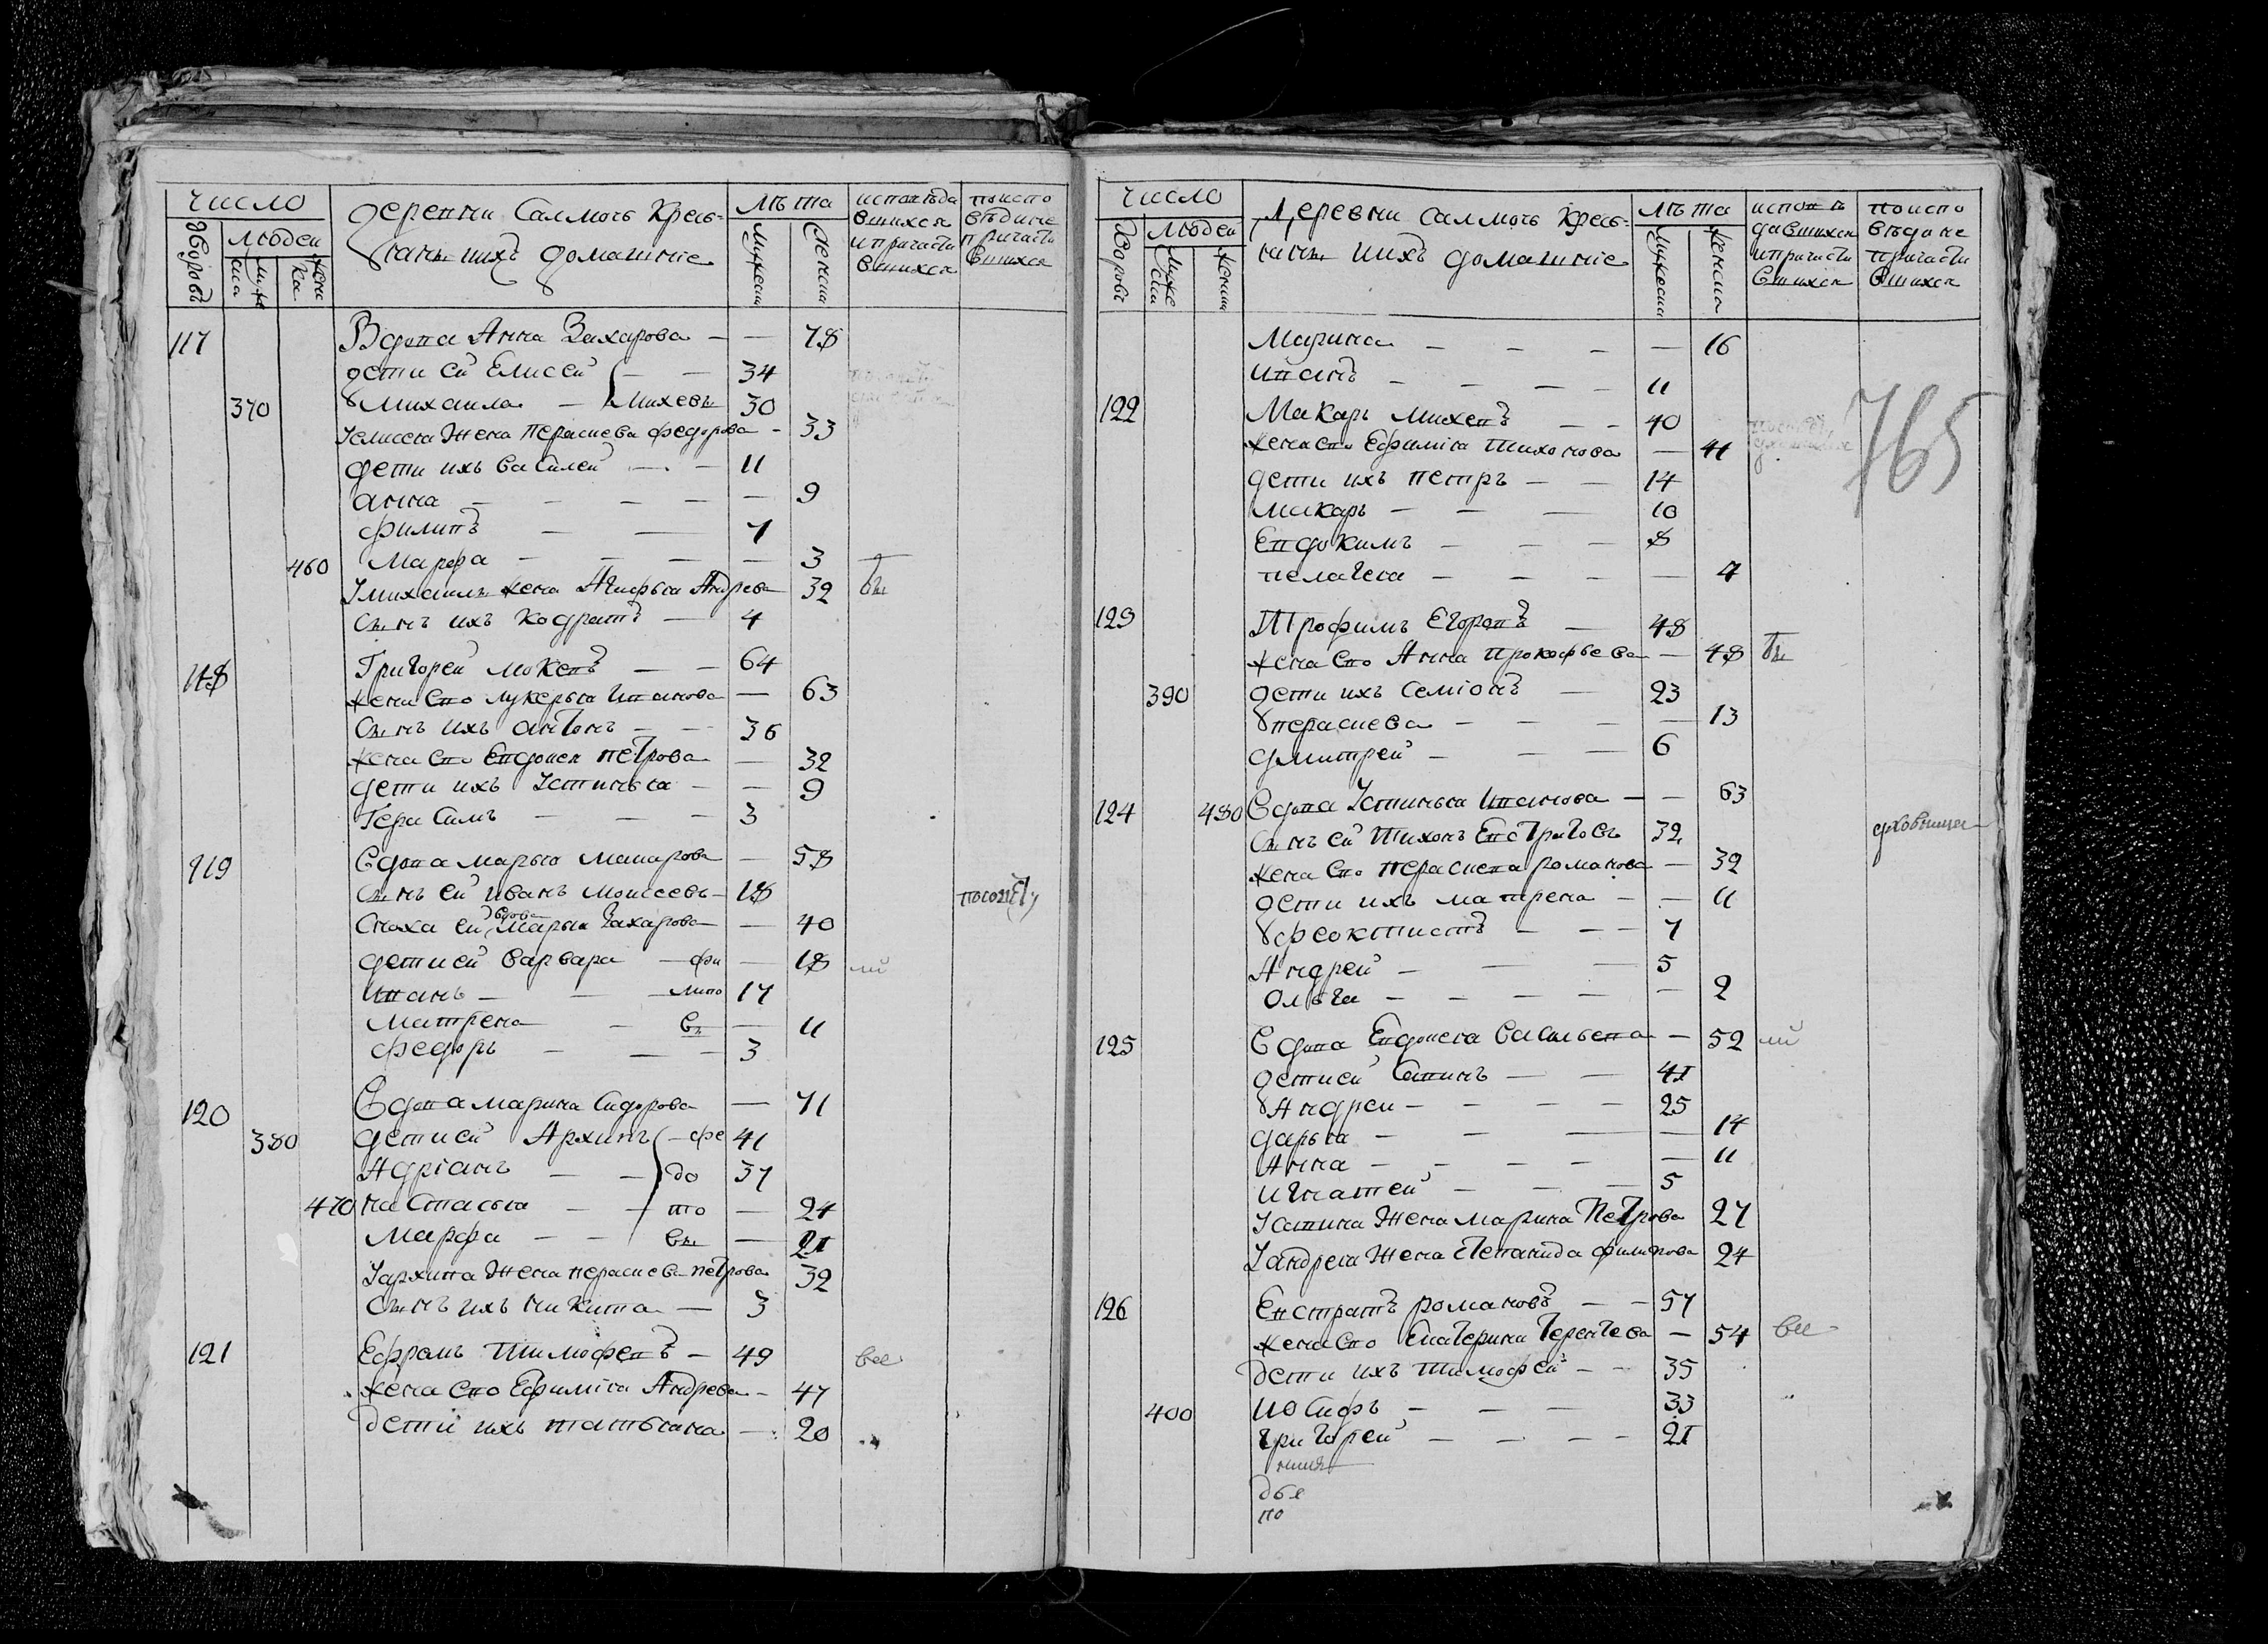 число
деревни Салмогъ Крес-
тяны ихъ домашніе
лѣта
исповѣда
вшихся
и причасти
вшихся
по испо
вѣди не
причасти
вшихся
дворовъ
людей
мужеска
женска
мужеска
женска
117 Вдова Анна Захарова — — 78
дети ей Елисей — — 34
370 Михаила — Михевы 30
Уелисея жена Парасцева Федорова - 33
дети ихъ Василей — - 11
анна — — — — 9
Филипъ — — 7
460 Марфа — — — — 3
Умихаилы жена Агафья Андрева 32 бы
сынъ ихъ Кодратъ — 4
118 Григорей Мокевъ — — 64
жена ево лукерья Иванова — 63
сынъ ихъ антонъ — — 36
жена ево Евдокея петрова — 32
дети ихъ Устинья — — 9
Герасимъ — — — 3
119 Вдова марья Макарова — 58
сынъ ей иванъ Моисеевъ — 18
сноха ей вдова Марья Захарова — 40
дети ей варвара — фи — 18
Иванъ — — липо 17
матрена — вы — 11
федоръ — — — 3
120 Вдова марина Сидорова — 71
380 дети ей Архипъ — фе 41
Адріанъ — — до 37
470 настасья — — то — 24
марфа — — вы — 21
Уархипа жена парасцева петрова 32
сынъ ихъ никита — 3
121 Ефремъ Тимофевъ — 49 все
жена ево Ефимія Андрева - 47
дети ихъ татьяна — 20
число
Деревни салмогъ Крес-
тяны ихъ домашніе
лѣта
исповѣ
давшихся
и причасти
вшихся
по испо
вѣди не
причасти
вшихся
дворовъ
людей
мужеска
женска
мужеска
женска
765
Марина — — — — 16
Иванъ — — — — 11
122 Макаръ Михевъ — — 40
жена ево Ефимія Тихонова — 41
дети ихъ петръ — — 14
макаръ — — — 10
Евдокимъ — — — 8
пелагея — — — — 7
123 Трофимъ Егоровъ — 48
жена ево Анна Прокофьева — 48 бы
390 дети ихъ семіонъ — 23
парасцева — — — — 13
дмитрей — — — 6
124 480 Вдова Устинья Иванова — — 63
сынъ ей Тихонъ Евстратовъ 32
жена ево парасцева романова — 32
дети ихъ матрена — — 11
феоктистъ — — — 7
Андрей — — — 5
ольга — — — — — 2
125 Вдова Евдокея васильева — 52
дети ей Савинъ — — 41
Андрей — — — — 25
дарья — — — — 14
Анна — — — — — 11
игнатей — — — 5
Усавина жена марина Петрова 27
Уандрея жена степанида филипова 24
126 Евстратъ романовъ — — 57
жена ево Екатерина Терентева — 54 все
дети ихъ тимофей — — 35
400 иосифъ — — — 33
григорей — — — — 21
две
по